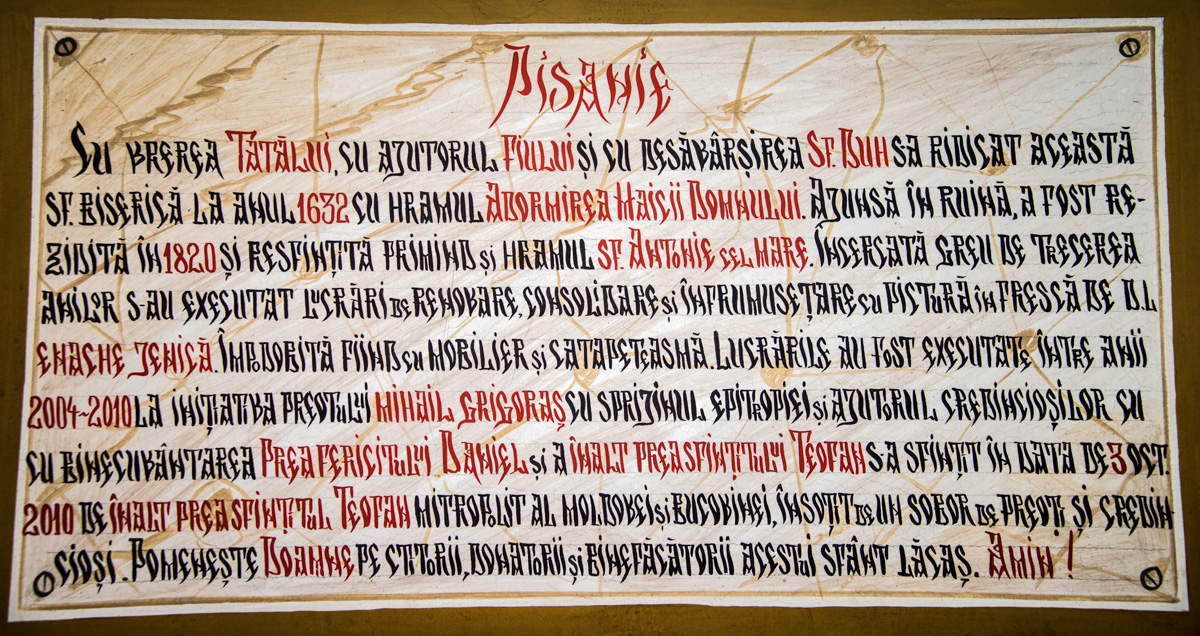 Pisanie
Cu vrerea Tatălui, cu ajutorul Fiului și cu desăvârșirea Sf. Duh s-a ridicat această
sf. biserică la anul 1632 cu hramul Adormirea Maicii Domnului. Ajunsă în ruină, a fost re-
zidită în 1820 și resfințită primind și hramul Sf. Antonie cel Mare. Încercată greu de trecerea
anilor s-au executat lucrări de renovare, consolidare și înfrumusețare cu pictură în frescă de D.L
Enache Jenică. Împodobită fiind cu mobilier și catapeteasmă. Lucrările au fost executate între anii
2004-2010 la inițiativa preotului Mihail Grigoraș cu sprijinul epitropiei și ajutorul credincioșilor cu
cu binecuvântarea Preafericitului Daniel și a Înalt Preasfințitului Teofan s-a sfințit în data de 3 oct.
2010 de Înalt Preasfințitul Teofan mitropolit al Moldovei și Bucovinei, însoțit de un sobor de preoți și credin-
cioși. Pomenește Doamne pe ctitorii, donatorii și binefăcătorii acestui sfânt lăcaș. Amin!